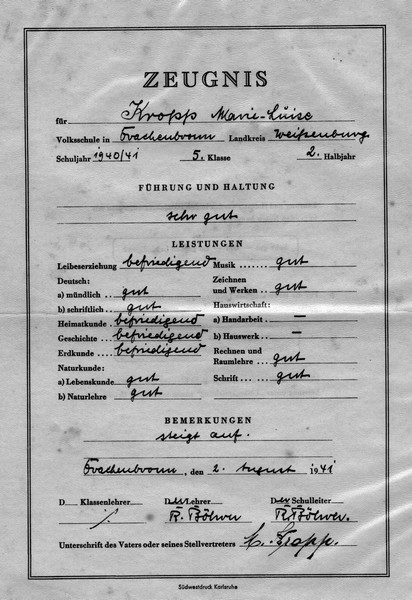 ZEUGNIS
für Kropp Marie-Luise
Volksschule in Drachenbronn Landkreis Weißenburg
Schuljahr 1940/41 5. Klasse 2. Halbjahr
FÜHRUNG UND HALTUNG
sehr gut
LEISTUNGEN
Leibeserziehung befriedigend Musik ....... gut
Deutsch: Zeichnen
a) mündlich .. gut und Werken .. gut
b) schriftlich .. gut Hauswirtschaft:
Heimatkunde .. befriedigend a) Handarbeit .. –
Geschichte ... befriedigend b) Hauswerk .. –
Erdkunde .... befriedigend Rechnen und
Naturkunde: Raumlehre ... gut
a) Lebenskunde gut Schrift ..... gut
b) Naturlehre gut
BEMERKUNGEN
steigt auf.
Drachenbronn, den 2. August 1941
D Klassenlehrer Der Lehrer Der Schulleiter
R. R.
Unterschrift des Vaters oder seines Stellvertreters Kropp.
Südwestdruck Karlsruhe